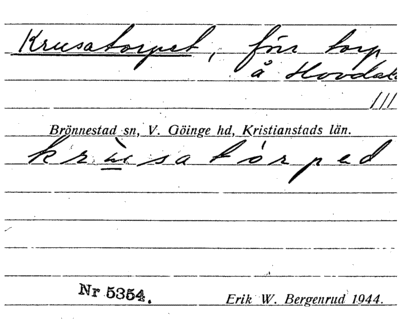 Krusatorpet, förr torp
å Hovdala
111
Brönnestad sn, V. Göinge hd, Kristianstads län.
krùsatórped
Nr 5354. Erik W. Bergenrud 1944.